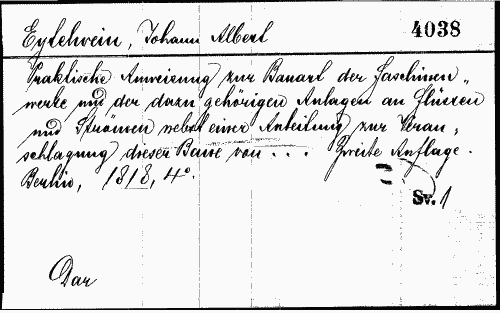 Eytelwein, Johann Albert
4038
Praktische Anweisung zur Bauart der Faschinen„
werke und der dazu gehörigen Anlagen an Flüssen
und Strömen nebst einer Anleitung zur Veran„
schlagung dieser Baue von ... Zweite Auflage.
Berlin, 1818, 4°.
Sv. 1
Dar